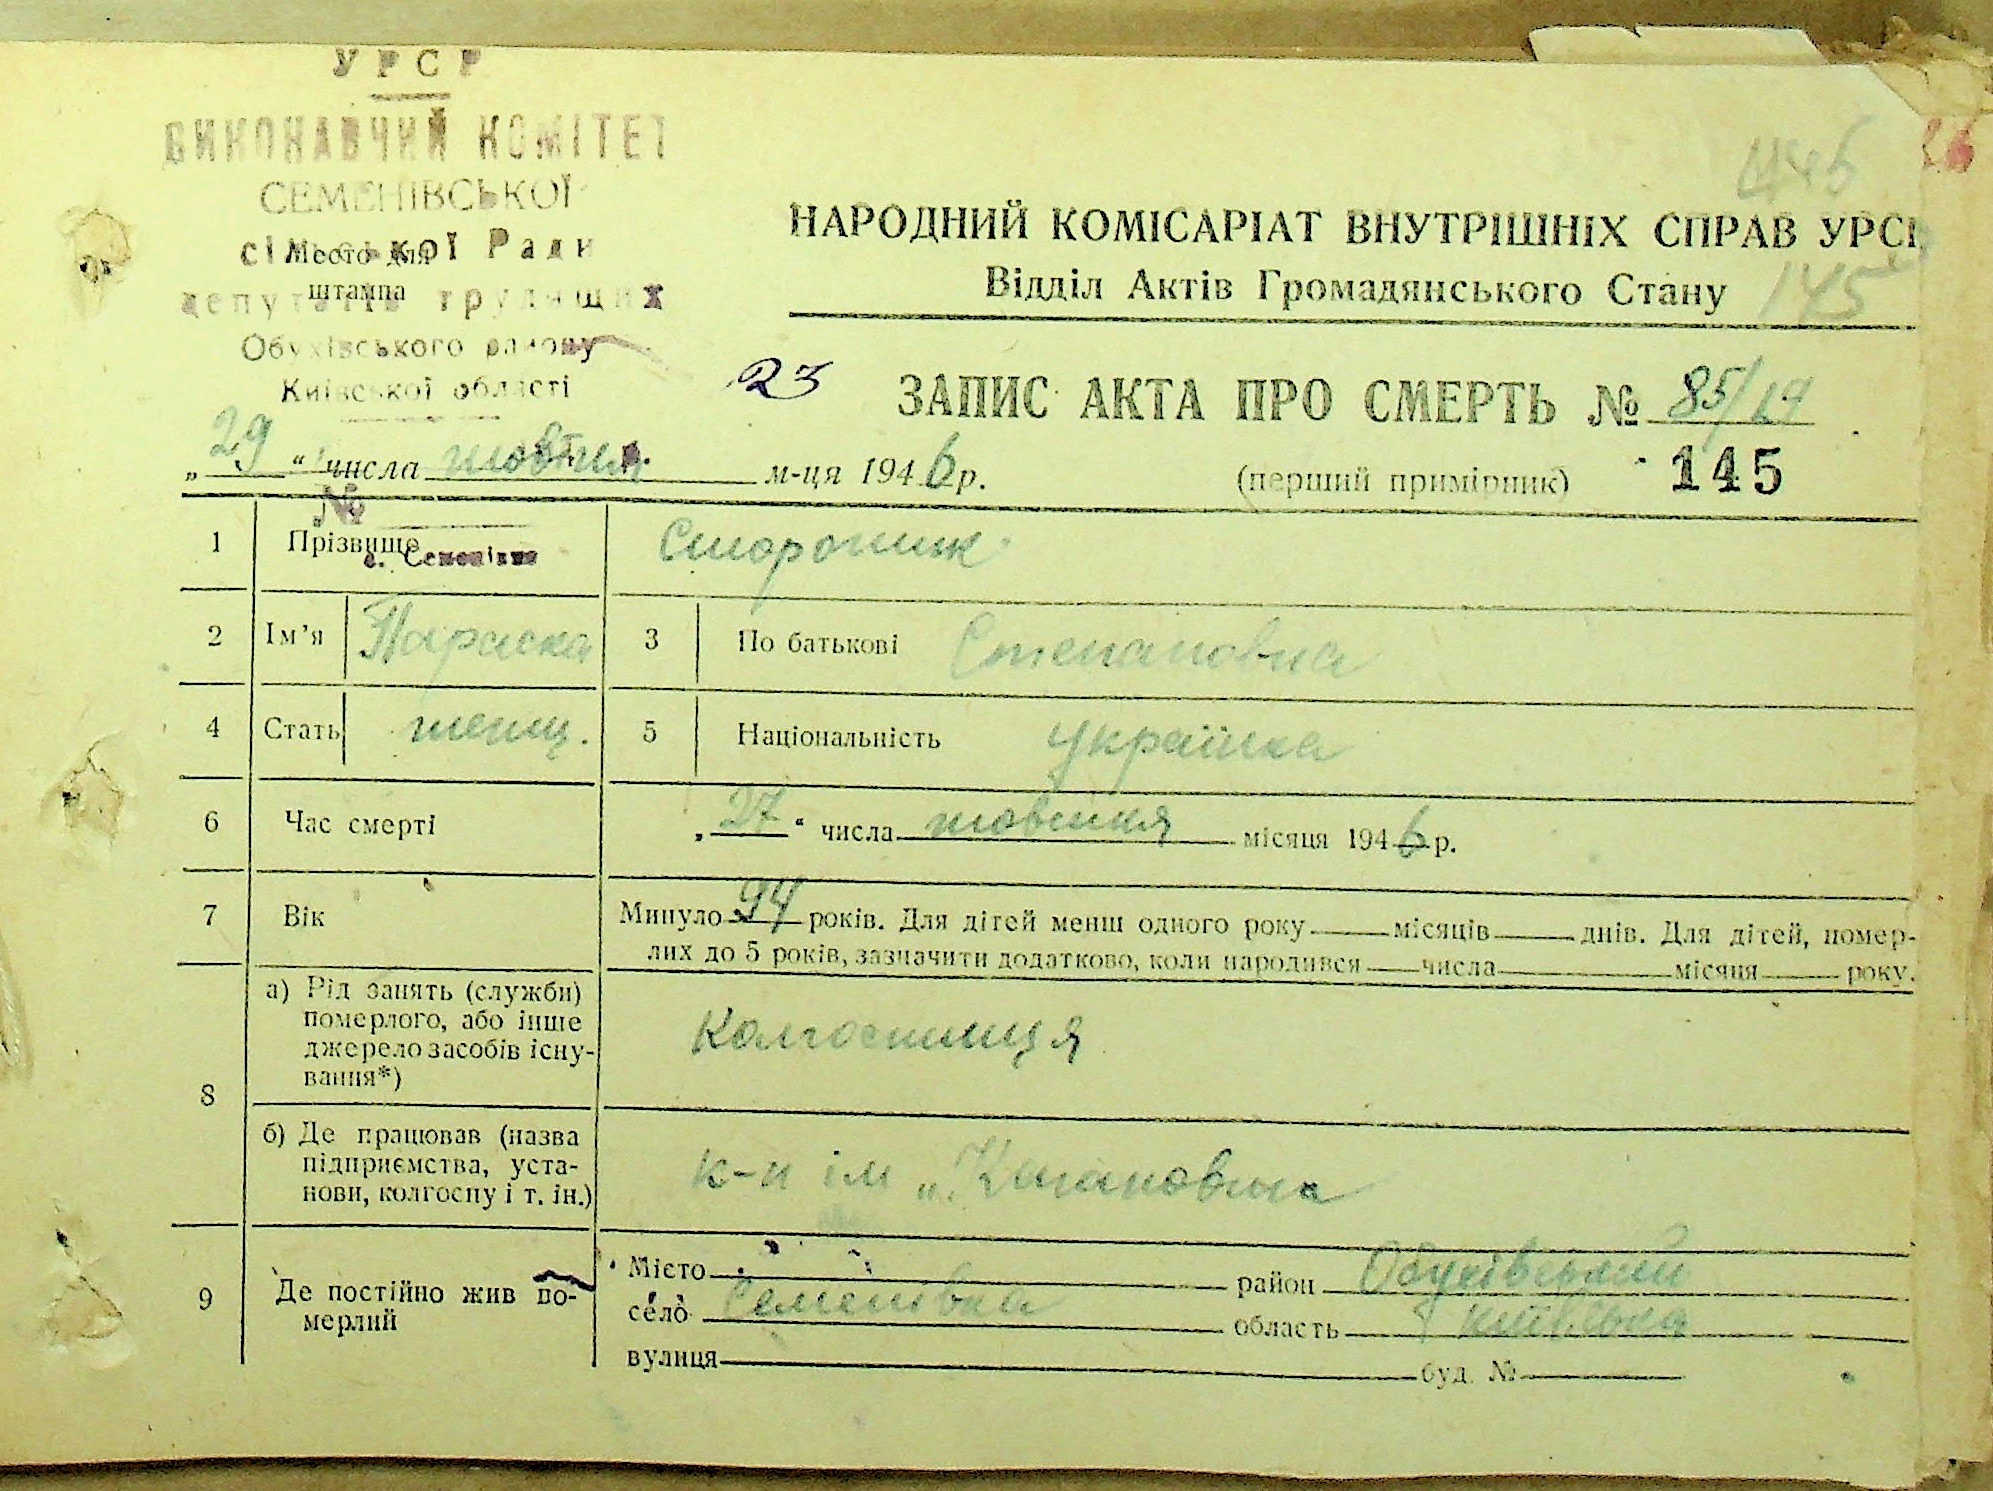 УРСР
ВИКОНАВЧИЙ КОМІТЕТ
СЕМЕНІВСЬКОЇ
сільської Ради
депутатів трудящих
Место для
штампа
Обухівського району
Київської області
146
НАРОДНИЙ КОМІСАРІАТ ВНУТРІШНІХ СПРАВ УРСР
Відділ Актів Громадянського Стану 145
23 ЗАПИС АКТА ПРО СМЕРТЬ № 85/19
„29“ числа жовтня м-ця 1946 р. (перший примірник) 145
№
с. Семенівка
1 Прізвище Сторониж
2 Ім’я Параска 3 По батькові Степановна
4 Стать женщ. 5 Національність українка
6 Час смерті „27“ числа жовтня місяця 1946 р.
7 Вік Минуло 94 років. Для дітей менш одного року місяців днів. Для дітей, помер-
лих до 5 років, зазначити додатково, коли народився числа місяця року.
8 а) Рід занять (служби)
померлого, або інше
джерело засобів існу-
вання*)
Колгоспниця
б) Де працював (назва
підприємства, уста-
нови, колгоспу і т. ін.)
к-п ім „Кагановича
9 Де постійно жив по-
мерлий
Місто район Обухівський
село Семенівка область Київська
вулиця буд. №